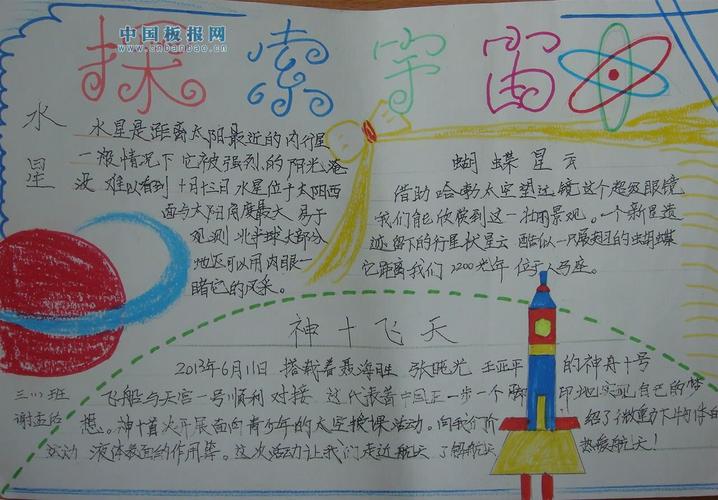 中国板报网
www.cnbanbao.cn
探索宇宙
水星
水星是距离太阳最近的内行星
一般情况下它被强烈的阳光淹
没 难以看到 十月十三日 水星位于太阳西
面与太阳角度最大 易于
观测 北半球大部分
地区可以用肉眼一
睹它的风采。
蝴蝶星云
借助哈勃太空望远镜这个超级眼镜
我们能欣赏到这一壮丽景观。一个新星遗
迹留下的行星状星云 酷似一只展翅的蝴蝶
它距离我们1200光年 位于人马座。
神十飞天
2013年6月11日 搭载着聂海胜 张晓光 王亚平 的神舟十号
飞船与天宫一号顺利对接 这代表着中国正一步一个脚 印地实现自己的梦
想。神十首次开展面向青少年的太空授课活动。向我们介 绍了微重力下物体
运动 液体表面的作用等。这次活动让我们走近航天 了解航天 热爱航天!
三(1)班